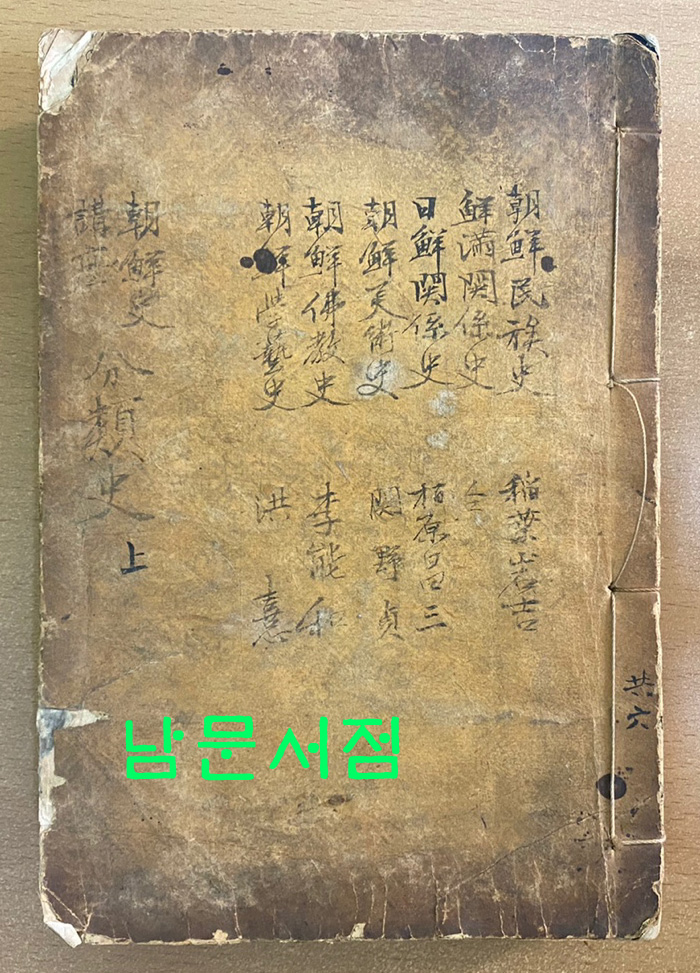 共六
朝鮮民族史 稲葉岩吉
鮮満関係史 仝
日鮮関係史 栢原昌三
朝鮮美術史 関野貞
朝鮮佛教史 李能和
朝鮮学藝史 洪憙
朝鮮史
講座
分類史 上
남문서점